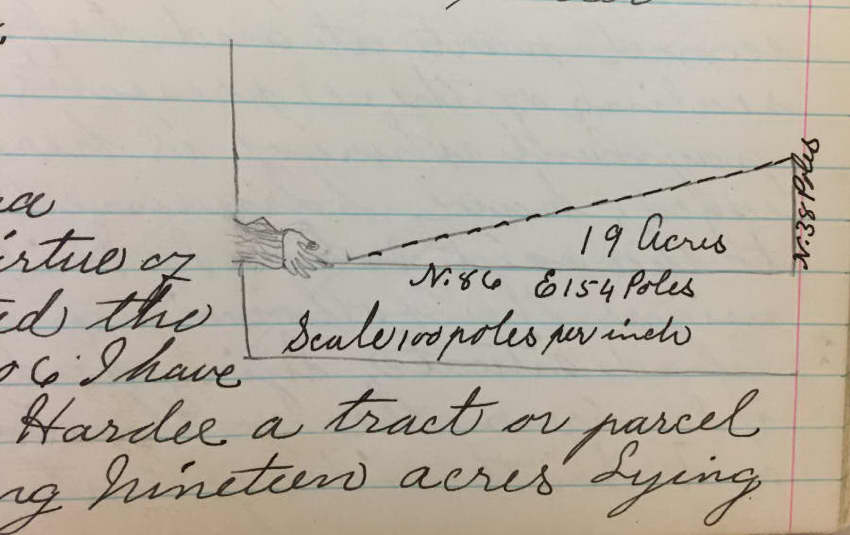 19 Acres
N. 38 Poles
N. 86 E 154 Poles
Scale 100 poles per inch
irtue of
ed the
06 I have
Hardee a tract or parcel
ng Nineteen acres Lying